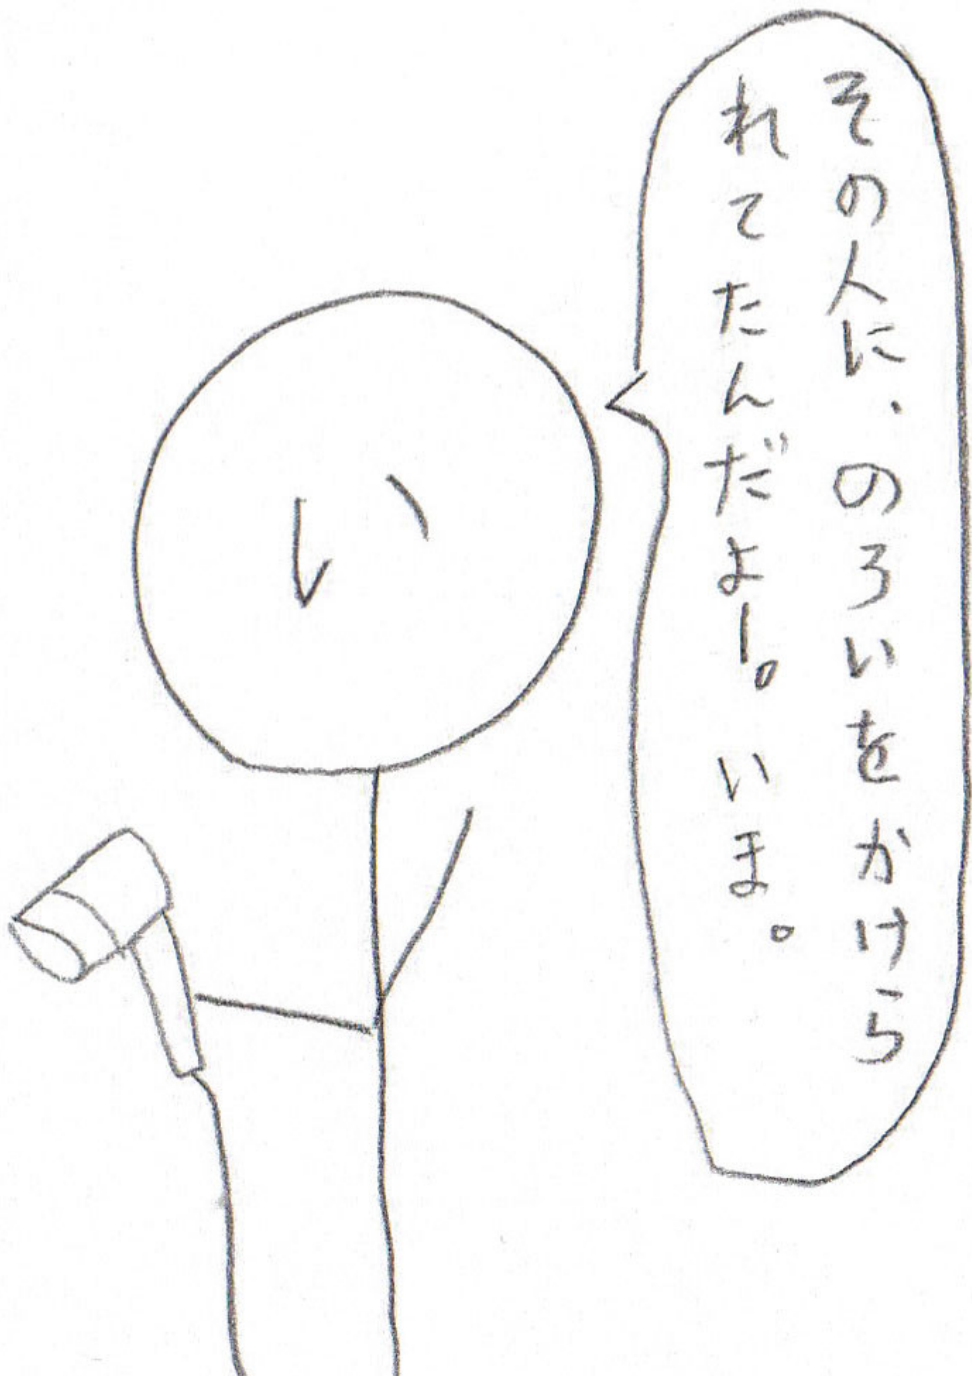 その人に、のろいをかけら
れてたんだよー。いま。
い